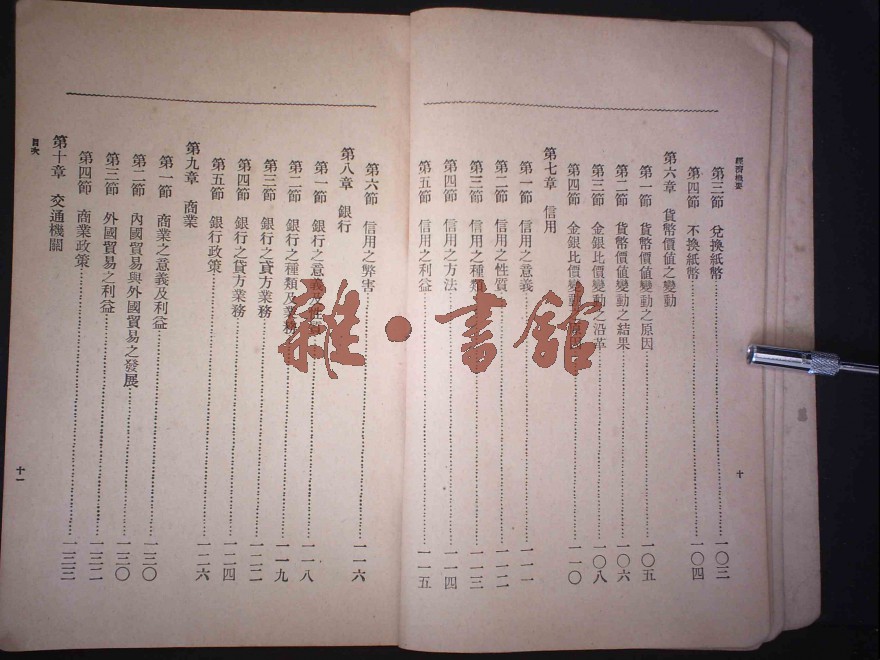 經濟概要
十
第三節 兌換紙幣……一〇三
第四節 不換紙幣……一〇四
第六章 貨幣價值之變動
第一節 貨幣價值變動之原因……一〇五
第二節 貨幣價值變動之結果……一〇六
第三節 金銀比價變動之沿革……一〇八
第四節 金銀比價變動之原因……一一〇
第七章 信用
第一節 信用之意義……一一一
第二節 信用之性質……一一二
第三節 信用之種類……一一三
第四節 信用之方法……一一四
第五節 信用之利益……一一五
第六節 信用之弊害……一一六
第八章 銀行
第一節 銀行之意義及性質……一一八
第二節 銀行之種類及業務……一一九
第三節 銀行之貸方業務……一二二
第四節 銀行之貸方業務……一二四
第五節 銀行政策……一二六
第九章 商業
第一節 商業之意義及利益……一三〇
第二節 內國貿易與外國貿易之發展……一三〇
第三節 外國貿易之利益……一三二
第四節 商業政策……一三三
第十章 交通機關
目次
十一
雜·書館